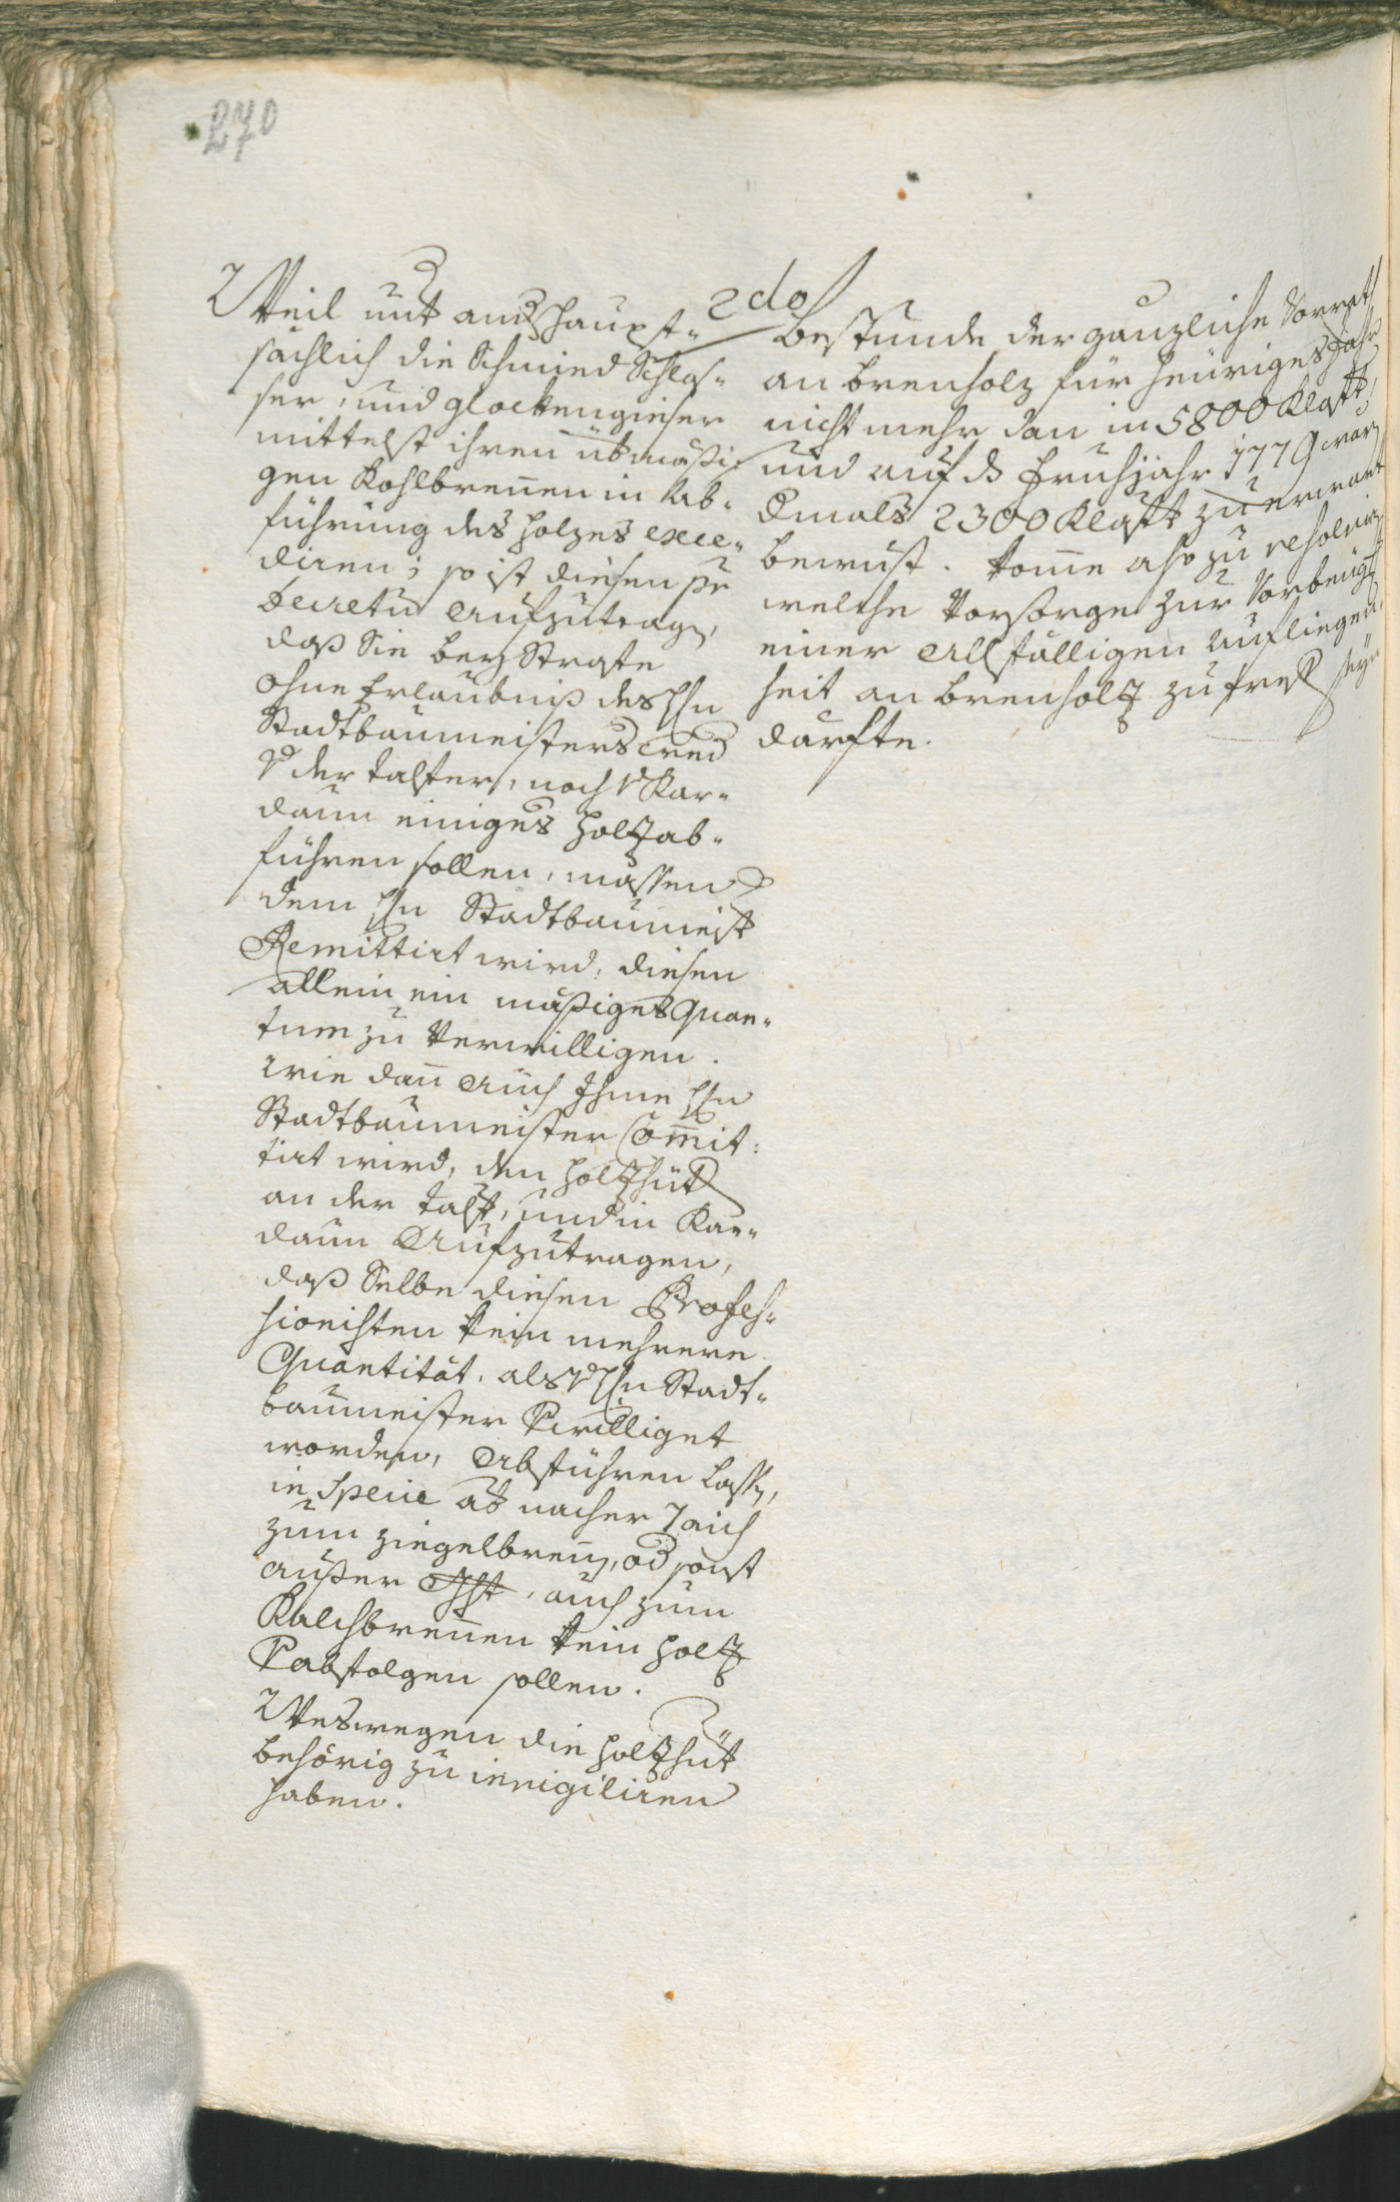 270
Weil nun auch haupt-
sächlich die Schmied Schlos-
ser, und glockengiesser
mittelst ihren übmässi-
gen Kohlbrennen in Ab-
führung des holzes exce-
diren; so ist diesen per
Decretu aufzutragen,
daß Sie bey Strafe
ohne Erlaubniß des Hn
Stadtbaumeisters
der talfer, noch Kar-
daun einiges holz ab-
führen sollen, massen
dem Hn Stadtbaumeist
Remittirt wird, diesen
allein ein mässiges Quan-
tum zu Verwilligen.
wie dan auch Ihme Hn
Stadtbaumeister Com̄it-
tirt wird, den holzhüt
an der talf, und in Kar-
daun Aufzutragen,
daß Selbe diesen Profes-
sionisten kein mehrere
Quantität, als Hn Stadt-
baumeister Verwilliget
worden, Abführen lassen,
in Specie ab nacher
zum ziegelbrenen, od sonst
ausser, auch zum
Kalchbrennen kein holz
Verabfolgen sollen.
Weswegen die holzhüt
behörig zu invigiliren
haben.
2do Bestunde der gänzliche Vorrath
an brenholz für heüriges Jahr
nicht mehr dan in 5800 Klaft
und auf ds Frühjahr 1779 war
dmals 2300 Klaft zu erwart
bewust. kome also zu resolvirn
welche Vorsorge zur Vorbeug
einer Allfälligen Aufliegen-
heit an brenholz zu treff seyn
darfte.